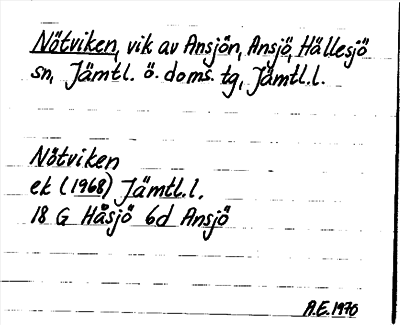 Nötviken, vik av Ansjön, Ansjö, Hällesjö
sn, Jämtl. ö. doms. tg, Jämtl.l.
Nötviken
ek (1968) Jämtl.l.
18 G Håsjö 6d Ansjö
A.E. 1970